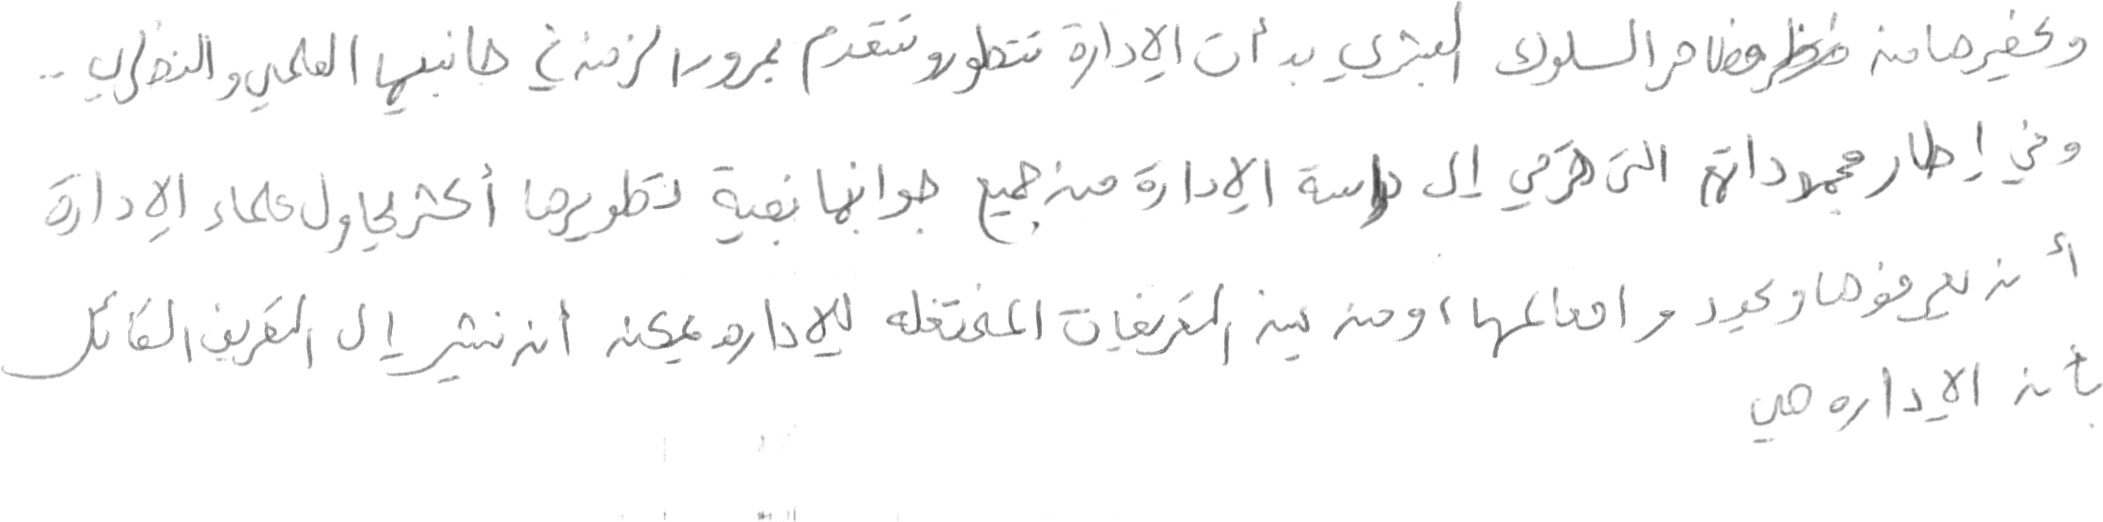 وغيرها من مظاهر السلوك البشري بدأت الإدارة تتطور وتتقدم بمرور الزمن في جانبيها العلمي والنظري ..
وفي إطار مجهوداتهم التي ترمي إلى دراسة الإدارة من جميع جوانبها بغية تطويرها أكثر يحاول علماء الإدارة
أن يعرفوها ويحددوا معالمها، ومن بين التعريفات المختلفه للإداره يمكن أن نشير إلى التعريف القائل
بأن الإداره هي